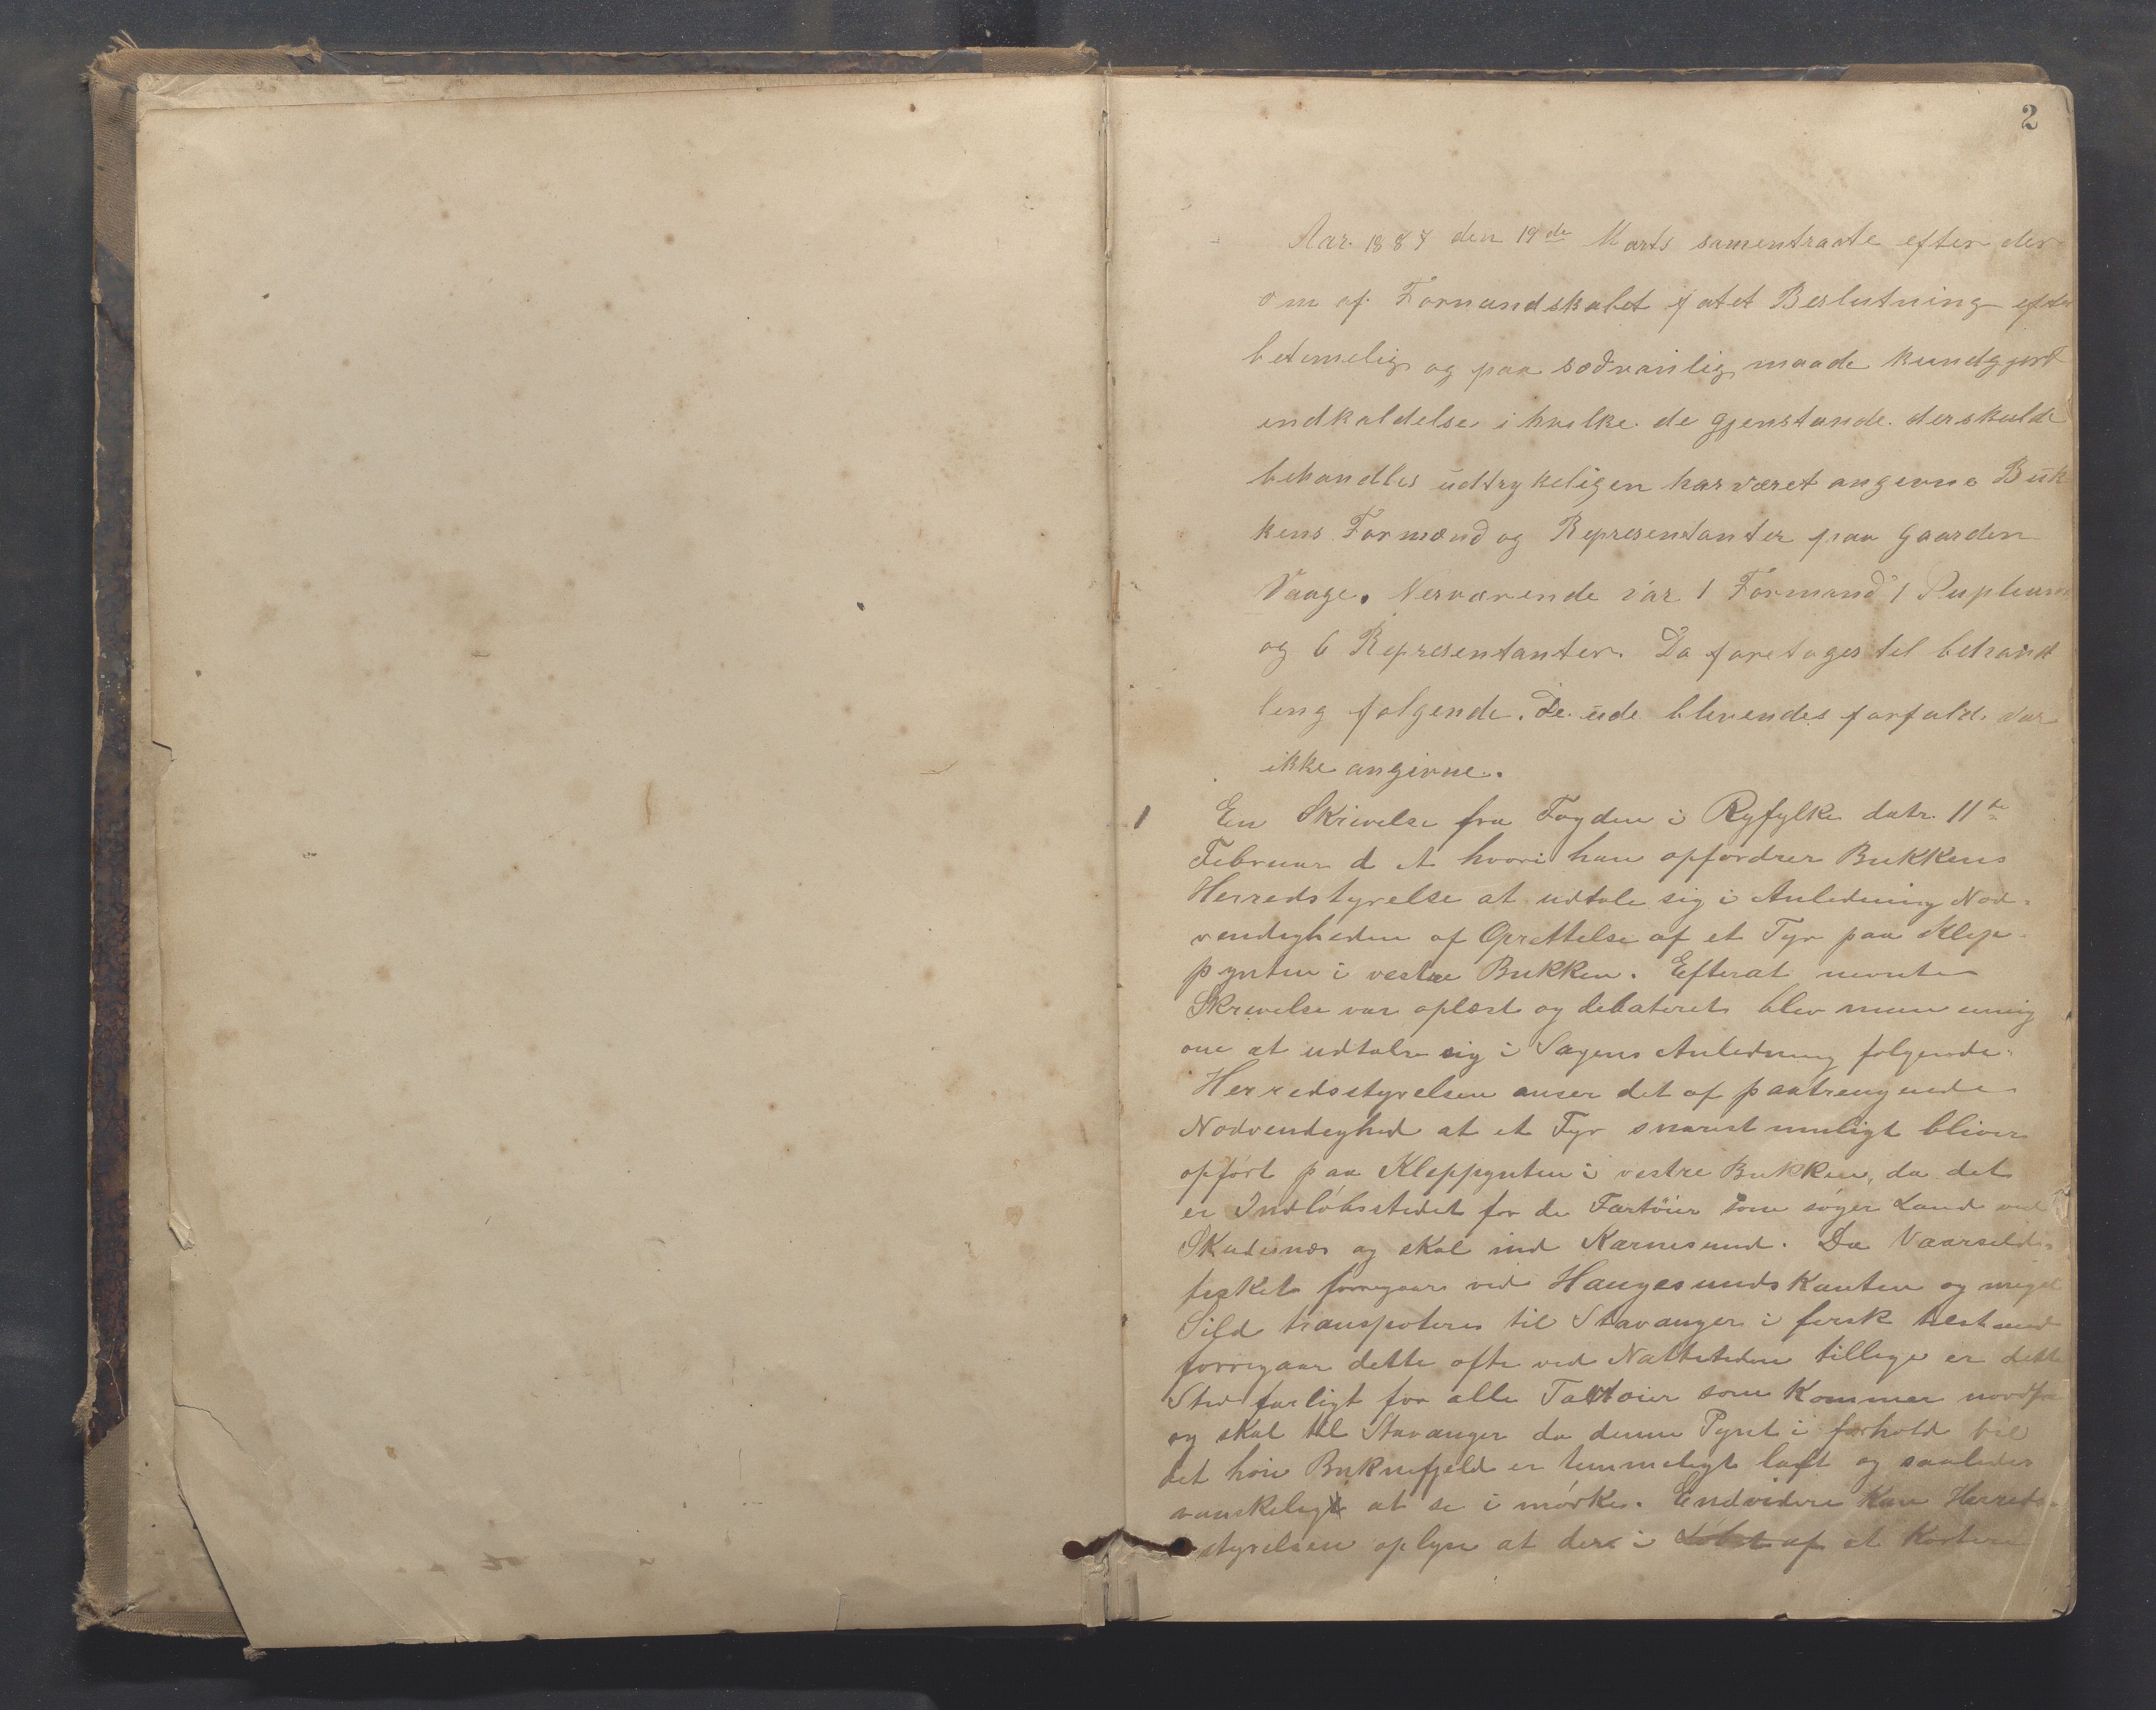 2
Aar. 1887 den 19de Marts samentraate efter der
om af Formandskabet fatet Beslutning efter
betimelig og paa sedvanlig maade kundgjort
indkaldelse i hvilke de gjenstande derskulde
behandles udtrykeligen har været angivne Buk
kens Formænd og Representanter paa gaarden
Vaage. Nerværende var 1 Formand 1 Supleant
og 6 Representanter. Da foretages til behand
ling følgende. De ude blevendes forfald var
ikke angivne.
1 En Skrivelse fra Fogden i Ryfylke datr. 11te
Februar d A hvori han opfordrer Bukkens
Herredstyrelse at udtale sig i Anledning Nød-
vendigheden af Oprettelse af et Fyr paa Klep-
pynten i vestre Bukken. Efterat nevnte
Skrivelse var oplæst og debateret blev man enig
om at udtale sig i Sagens Anledning følgende:
Herredsstyrelsen anser det af paatrengende
Nødvendighed at et Fyr snarest muligt bliver
opført paa Kleppynten i vestre Bukken, da det
er Indløbsstedet for de Fartøier som søger Land ved
Skudesnæs og skal ind Karmsund. Da Vaarsild-
fisket foregaar ved Haugesunds Kanten og meget
Sild transpoteres til Stavanger i fersk tilstand
forregaar dette ofte ved Nattetiden tillige er dette
Sted farligt for alle Fartøier som Kommer nordfra
og skal til Stavanger da denne Pynt i forhold til
det høie Buknefjeld er temmeligt lavt og saaledes
vanskeligt at se i mørke. Endvidere Kan Herreds-
styrelsen oplyse at der i Løbet af et Kortere